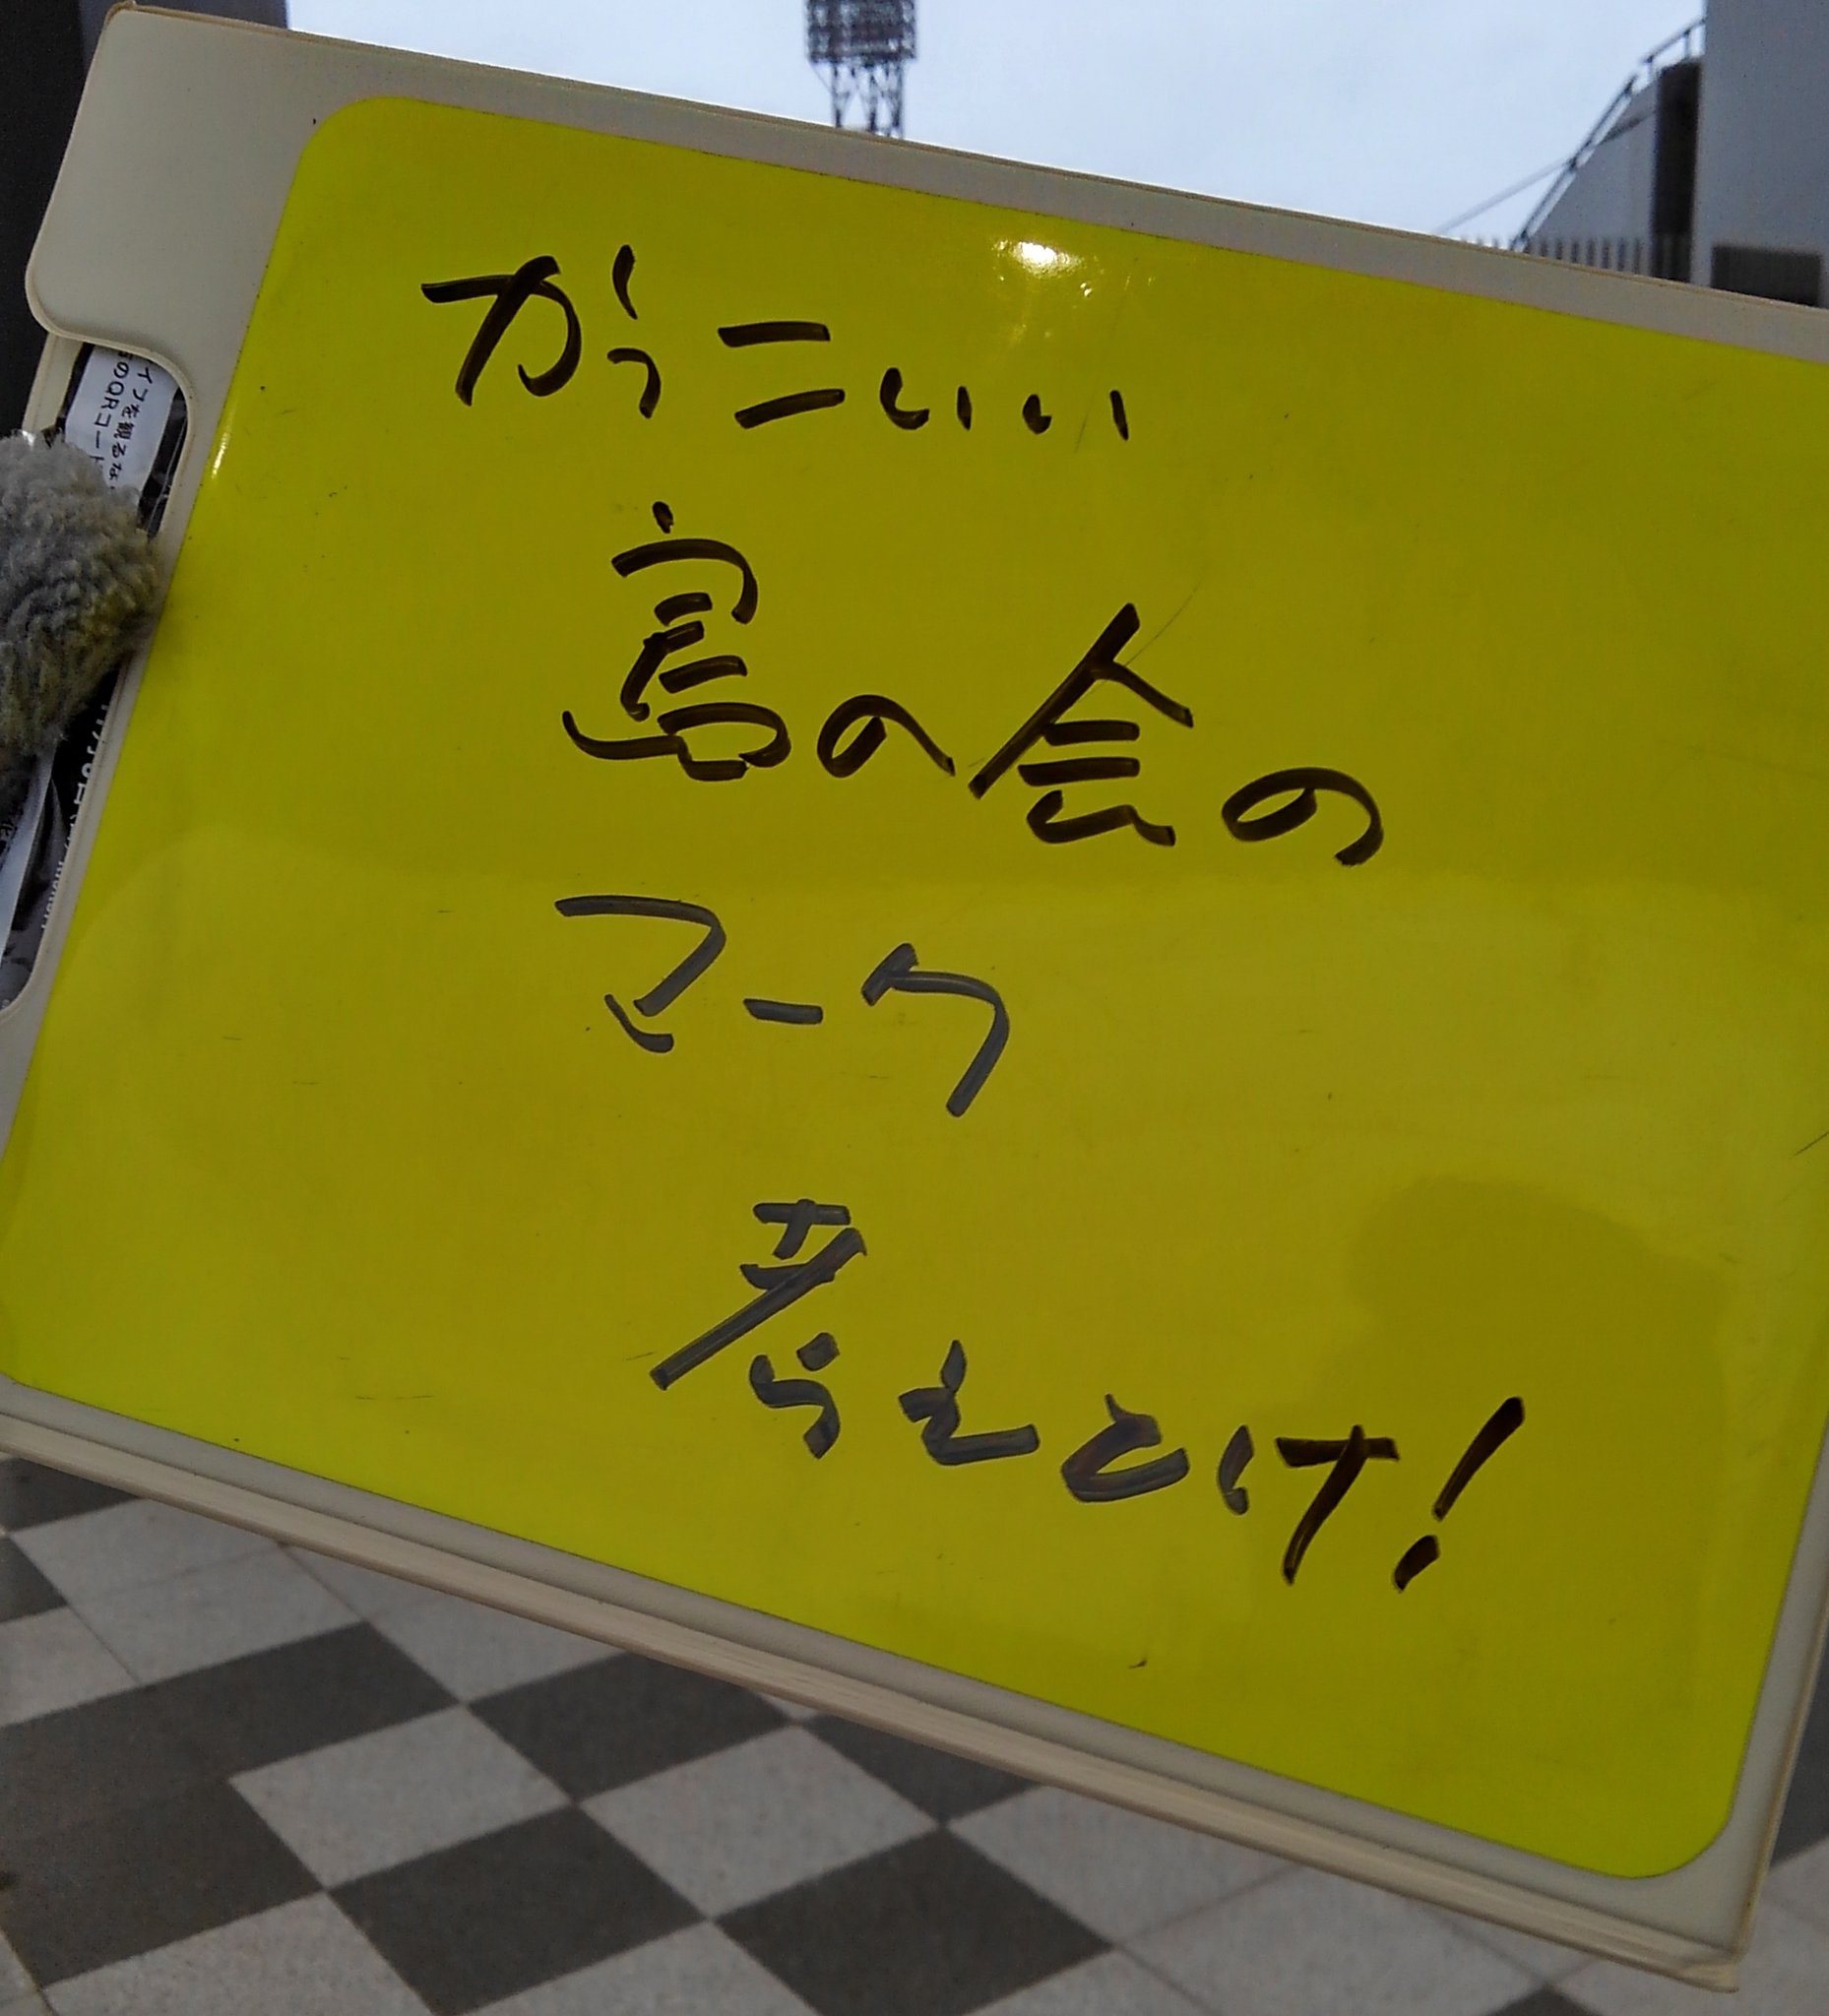 かっこいい
島の会の
マーク
考えとけ!
を観るな
のQRコー